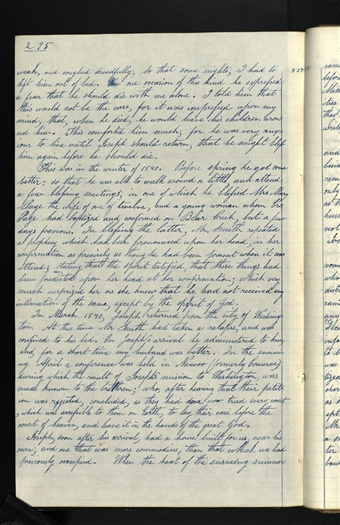 295
weak, and coughed dreadfully, so that some nights, I had to
lift him out of bed. On one occasion of this kind he expressed
a fear that he should die with me alone. I told him that
this would not be the case, for it was impressed upon my
mind, that, when he died, he would have his children around
him. This comforted him much; for he was very anx-
ious to live until Joseph should return, that he might bless
him again before he should die.
This was in the winter of 1840. Before spring he got some
better; so that he was able to walk around a little, and attend
a few blessing meetings, in one of which he blessed Mrs. Mary
Page the wife of one of twelve, and a young woman whom Bro
Page had baptized and confirmed on Bear Creek, but a few
days previous. In blessing the latter, Mr. Smith repeated
a prophecy which had been pronounced upon her head, in her
confirmation as precisely as though he had been present when it was
uttered; stating that the spirit testified, that these things had
been predicted upon her head at her confirmation; which very
much surprised her as she knew that he had not received any
intimation of the same, except by the spirit of God.
In March 1840, Joseph returned from the city of Washing-
ton. At this time Mr. Smith had taken a relapse, and was
confined to his bed. On Joseph's arrival he administered to him
and, for a short time my husband was better. In the ensuing
April a conference was held in Nauvoo (formerly Commerce)
during which the result of Joseph's mission to Washington, was
made known to the brethren; who after hearing that their petit-
ion was rejected, concluded, as they had now tried every court
which was accessible to them on Earth, to lay their case before the
court of heaven, and leave it in the hands of the great God.
Joseph, soon after his arrival, had a house built for us, near his
own; and one that was more commodious, than that which we had
previously occupied. When the heat of the ensueing summer